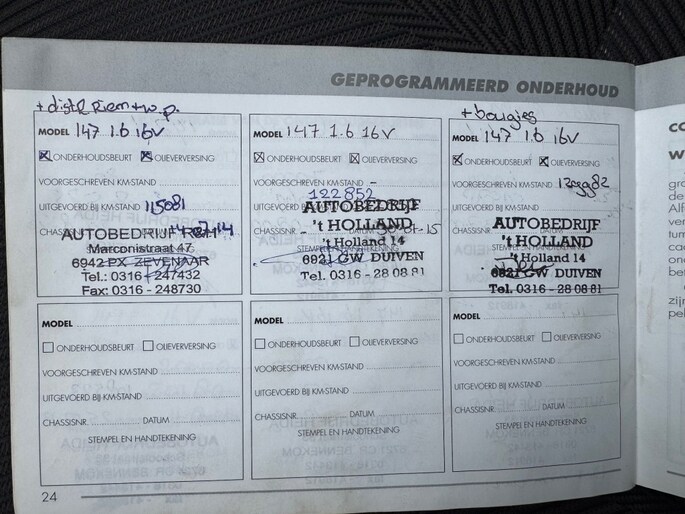 GEPROGRAMMEERD ONDERHOUD
+ distr. riem + w.p.
MODEL 147 1.6 16V
ONDERHOUDSBEURT OLIEVERVERSING
VOORGESCHREVEN KM-STAND
UITGEVOERD BIJ KM-STAND 115081
CHASSISNR. DATUM
AUTOBEDRIJF
Marconistraat 47
6942 PX ZEVENAAR
Tel.: 0316 - 247432
Fax: 0316 - 248730
MODEL 147 1.6 16V
ONDERHOUDSBEURT OLIEVERVERSING
VOORGESCHREVEN KM-STAND -
122852
UITGEVOERD BIJ KM-STAND
AUTOBEDRIJF
CHASSISNR. DATUM 30-01-15
't HOLLAND
't Holland 14
6921 GW DUIVEN
Tel. 0316 - 28 08 81
+ bougies
MODEL 147 1.6 16V
ONDERHOUDSBEURT OLIEVERVERSING
VOORGESCHREVEN KM-STAND
UITGEVOERD BIJ KM-STAND
AUTOBEDRIJF
't HOLLAND
't Holland 14
6921 GW DUIVEN
Tel. 0316 - 28 08 81
MODEL
ONDERHOUDSBEURT OLIEVERVERSING
VOORGESCHREVEN KM-STAND
UITGEVOERD BIJ KM-STAND
CHASSISNR. DATUM
STEMPEL EN HANDTEKENING
MODEL
ONDERHOUDSBEURT OLIEVERVERSING
VOORGESCHREVEN KM-STAND
UITGEVOERD BIJ KM-STAND
CHASSISNR. DATUM
STEMPEL EN HANDTEKENING
MODEL
ONDERHOUDSBEURT OLIEVERVERSING
VOORGESCHREVEN KM-STAND
UITGEVOERD BIJ KM-STAND
CHASSISNR. DATUM
STEMPEL EN HANDTEKENING
24